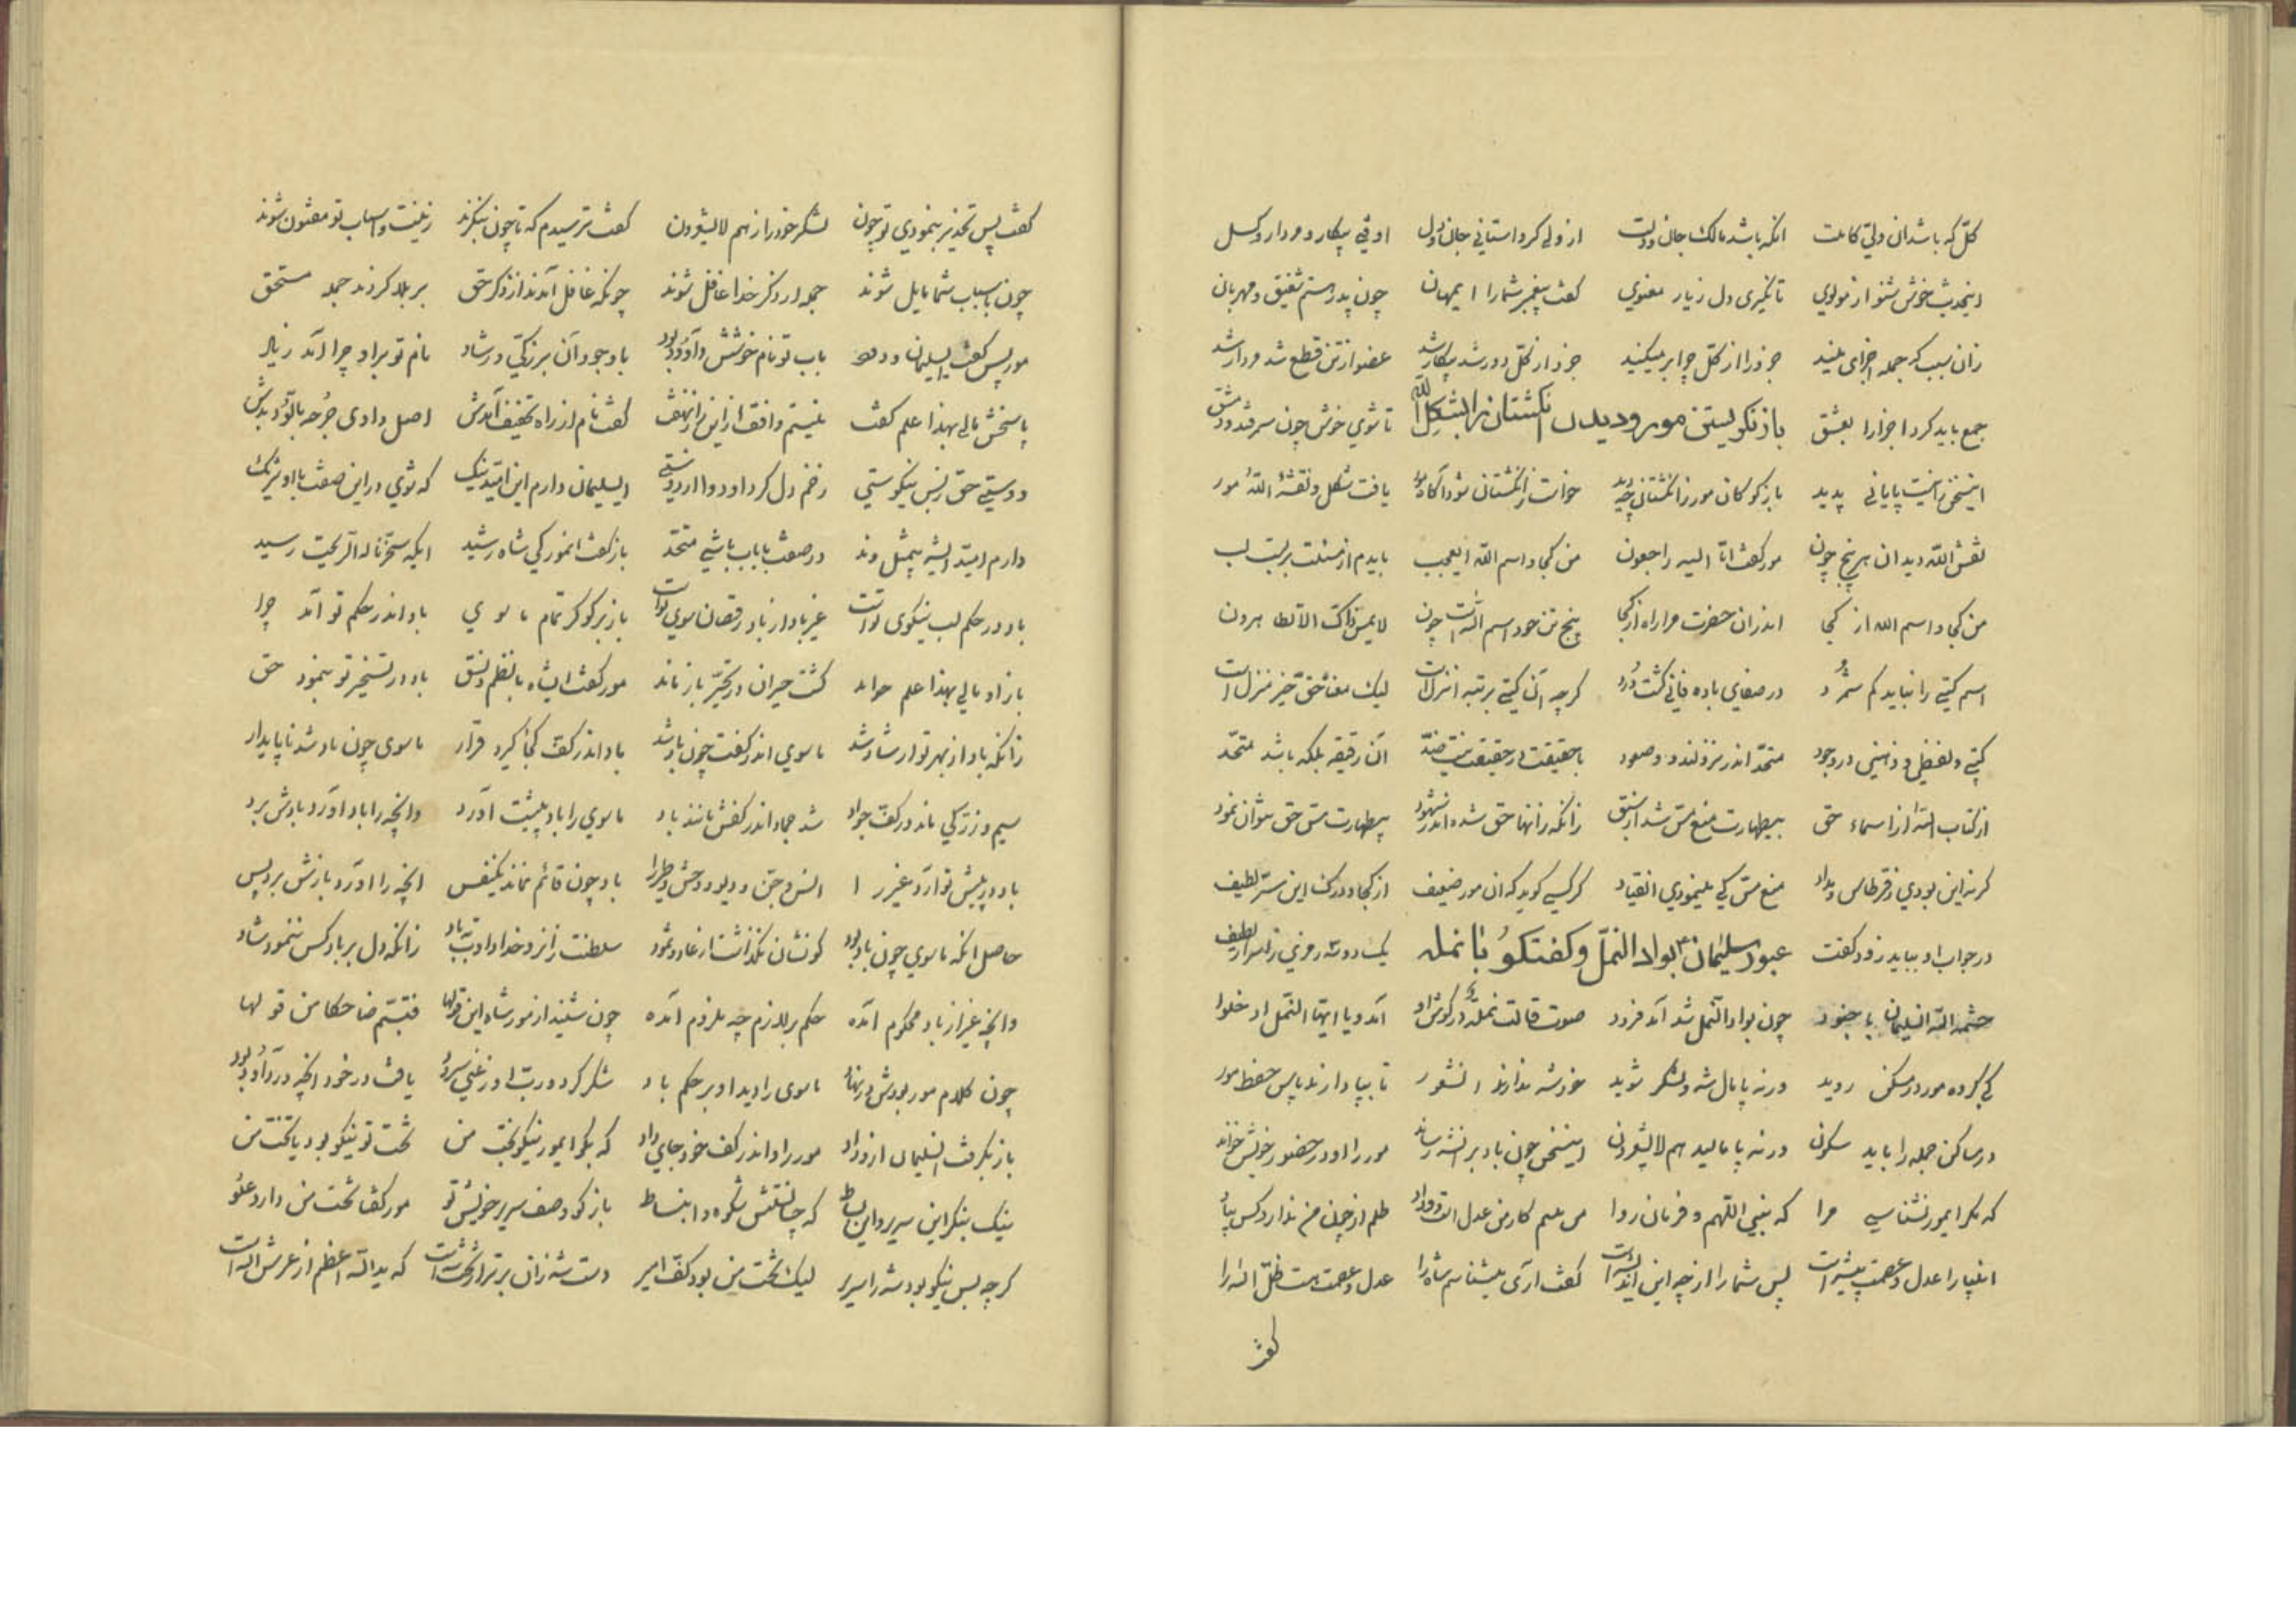 کل که باشد ان ولی کاملت انکه باشد مالک جان و دلت از ولی کرد استانی جان و دل اوفتی بیکار و مردار و کسل
اینحدیث خوش شنو از مولوی تا نگیری دل زیار معنوی گفت پیغمبر شما را ایمهان چون پدر هستم شفیق و مهربان
زان سبب که جمله اجزای منید جزو را از کل چرا بر میکنید جزو از کل دور شد بیکار شد عضو از تن قطع شد مردار شد
جمع باید کرد اجزا را بعشق تا شوی خوش چون سمرقند و دمشق
باز نگریستن مور و دیدن انگشتان را بشکل الله
اینسخن را نیست پایانی پدید باز گو کان مور ز انگشتان چه دید خواست ز انگشتان شود آگاه مور یافت شکل و نقشهٔ الله مور
نقش الله دید ان هر پنج چون مور گفت انا الیه راجعون من کجا و اسم الله ایعجب بایدم از مسئلت بربست لب
من کجا و اسم الله از کجا اندران حضرت مرا راه از کجا پنج تن خود اسم الله است چون لا یمس ذاک الا الطاهرون
اسم کتبی را نباید کم شمرد در صفای باده فانی گشت درد گرچه آن کتبی برتبه انزلست لیک معنا حق خیر منزل است
کتبی و لفظی و ذهنی در وجود متحد اندر نزول و در صعود با حقیقت در حقیقت نیست ضد آن رقیقه بلکه باشد متحد
از کتاب الله از اسماء حق بیطهارت منع مس شد از سبق زانکه زانها حق شده اندر شهود بیطهارت مس حق نتوان نمود
گر نه این بودی ز قرطاس و مداد منع مس کی مینمودی انقیاد گر کسی گوید که ان مور ضعیف از کجا و درک این سر لطیف
در جواب او بباید زود گفت یک دو سه رمزی ز اسرار لطیف
عبور سلیمان بواد النمل و گفتگو با نمله
حشمة الله السلیمان با جنود چون بواد النمل شد آمد فرود صوت قالت نملة در گوش او آمد و یا ایها النمل ادخلوا
کی گروه مور در مسکن روید ورنه پامال شه و لشکر شوید
در مساکن جمله را باید سکون ورنه پامالید هم لایشعرون اینسخن چون باد بر انشه رساند مور را او در حضور خویش خواند
که مگر ایمور نشناسی مرا که نبی اللهم و فرمان روا من علم کار من عدل است و داد ظلم از چون من ندارد کس بیاد
انبیا را عدل و عصمت پیشه است پس شما را از چه این اندیشه است گفت آری میشناسم شاه را عدل و عصمت هست ظل اله را
گفت
گفت پس تحذیر بنمودی تو چون لشکر خود را ز هم لایشعرون گفت ترسیدم که تا چون بنگرند زینت و اسباب تو مفتون شوند
چون باسباب شما مایل شوند جمله از ذکر خدا غافل شوند چونکه غافل آمدند از ذکر حق بر بلا کردند جمله مستحق
مور پس گفت ایسلیمان باب تو نام خوشش داود بود با وجود آن بزرگی و رشاد نام تو بر او چرا آمد زیاد
پاسخش مالی بهذا علم گفت نیستم واقف از این راز نهفت گفت نام از راه تخفیف آمدش اصل داوی جرحه بالود بدش
دوستی حق ز بس نیکوستی زخم دل کرد او دوا از دوستی ایسلیمان دارم این امید نیک که شوی در این صفت با او شریک
دارم امید ایشه بیمثل و ند در صفت با باب باشی متحد باز گفت انمور کی شاه رشید ایکه سخرنا له الریحت رسید
باد در حکم لب نیکوی تواست غیر باد از باد رقصان سوی تواست باز برگو کز تمام ماسوی باد اندر حکم تو آمد چرا
باز او مالی بهذا علم خواند گشت حیران در تحیر باز ماند مور گفت ایشاه با نظم و نسق باد در تسخیر تو بنمود حق
زانکه باد از بهر تو ارشاد شد ماسوی اندر کفت چون باد شد باد اندر کف کجا گیرد قرار ماسوی چون باد شد ناپایدار
سیم و زر کی ماند در کف جواد شد جماد اندر کفش مانند باد ماسوی را باد پیشت آورد وانچه را باد آورد بادش برد
باد در پیش تو آرد غیر را انس و جن و دیو و وحش و طیر را باد چون قائم نماند یکنفس انچه را آورد بازش برد پس
حاصل انکه ماسوی چون باد بود کو نشان نگذاشت از عاد و ثمود سلطنت را نزد خدا داد بباد زانکه دل بر باد کس ننمود شاد
وانچه غیر از باد محکوم آمده حکم بر لازم چه ملزوم آمده چون شنید از مور شاه این قولها فتبسم ضاحکا من قولها
چون کلام مور بودش در نهاد ماسوی را دید او بر حکم باد شکر کرد و رب اوزعنی سرود یافت در خود انچه در داود بود
باز بگرفت السلیمان ازوداد مور را و اندر کف خود جای داد که بگو ایمور نیکو بخت من تخت تو نیکو بود یا تخت من
نیک بنگر این سریر و این بساط که چه استش شکوه و انبساط باز گو وصف سریر خویش تو مور گفتا تخت من دارد علو
گرچه بس نیکو بود شه را سریر لیک تخت من بود کف امیر دست شه زان برتر از تخت شه است که ید الله اعظم از عرش اله است